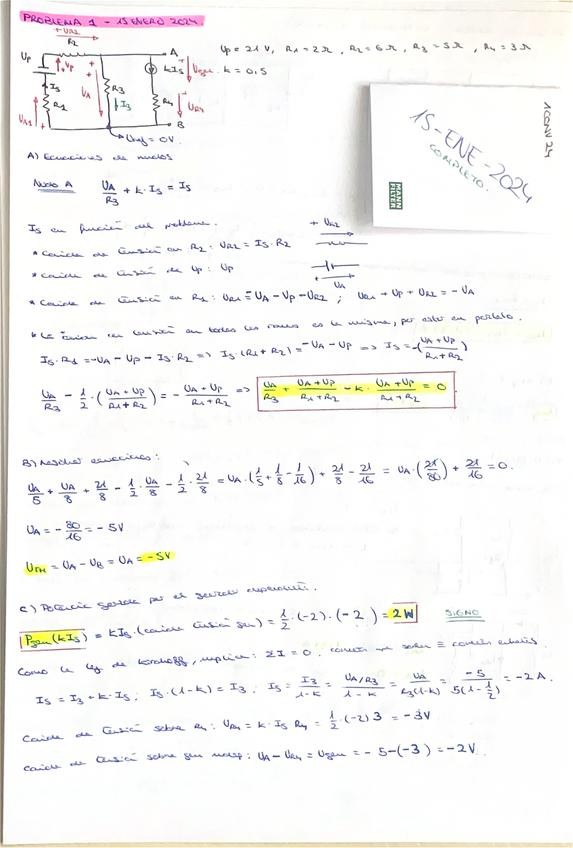 PROBLEMA 1 - 15 ENERO 2024
Up = 21 V, R1 = 2Ω, R2 = 6Ω, R3 = 5Ω, R4 = 3Ω
k = 0,5
+ UR2
R2
A
Up
Up
kIs
Ugen
Is
UA
R3
I3
R4
UR4
UR1
R1
B
Uref = 0V
15-ENE-2024
COMPLETO.
1 CONV 24
MANN
FILTER
A) Ecuaciones de nudos
Nudo A UA/R3 + k·Is = Is
Is en función del problema.
* Caída de tensión en R2: UR2 = Is·R2
+ UR2
* Caída de tensión de Up: Up
UA
* Caída de tensión en R1: UR1 = UA - Up - UR2 ; UR1 + Up + UR2 = -UA
* La tensión en todas las ramas es la misma, por estar en paralelo.
Is·R1 = -UA - Up - Is·R2 => Is·(R1+R2) = -UA - Up => Is = -(UA+Up/R1+R2)
UA/R3 - 1/2·(UA+Up/R1+R2) = -UA+Up/R1+R2 => UA/R3 + UA+Up/R1+R2 - k·UA+Up/R1+R2 = 0
B) Resolver ecuaciones:
UA/5 + UA/8 + 21/8 - 1/2·UA/8 - 1/2·21/8 = UA·(1/5 + 1/8 - 1/16) + 21/8 - 21/16 = UA·(21/80) + 21/16 = 0.
UA = -80/16 = -5V
UTH = UA - UB = UA = -5V
C) Potencia generada por el generador dependiente.
Pgen(kIs) = kIs·(caída tensión gen) = 1/2·(-2)·(-2) = 2W SIGNO
Como la ley de Kirchoff, implica: ΣI = 0. corriente que sale ≡ corriente entrante.
Is = I3 + k·Is; Is·(1-k) = I3; Is = I3/1-k = UA/R3/1-k = UA/R3(1-k) = -5/5(1-1/2) = -2A.
Caída de tensión sobre R4: UR4 = k·Is R4 = 1/2·(-2) 3 = -3V
Caída de tensión sobre gen: UA - UR4 = Ugen = -5-(-3) = -2V.